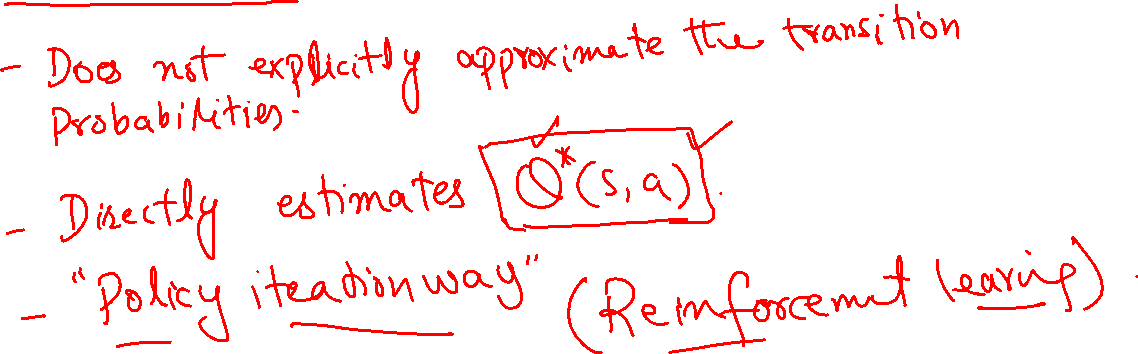 - Does not explicitly approximate the transition
Probabilities.
- Directly estimates Q*(s,a).
- "Policy iteation way" (Reinforcemut learing).